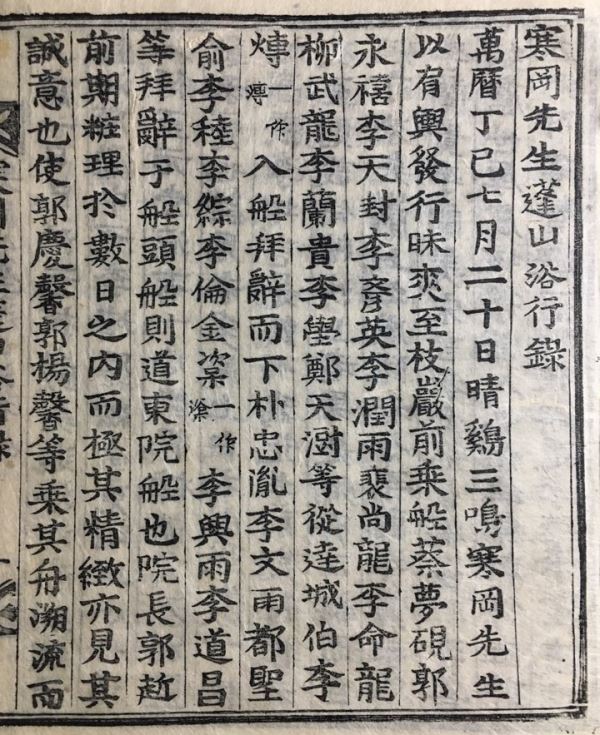 寒岡先生蓬山浴行錄
萬曆丁巳七月二十日晴鷄三鳴寒岡先生
以有輿發行昧爽至枝巖前乘船蔡夢硯郭
永禧李天封李彥英李潤雨裵尚龍李命龍
柳武龍李蘭貴李壆鄭天澍等從逹城伯李
慱一作入船拜辭而下朴忠胤李文雨都聖
俞李𥡦李綜李倫金㴉一作滁李興雨李道昌
等拜辭于船頭船則道東院船也院長郭赾
前期粧理於數日之內而極其精緻亦見其
誠意也使郭慶馨郭楊馨等乘其舟溯流而